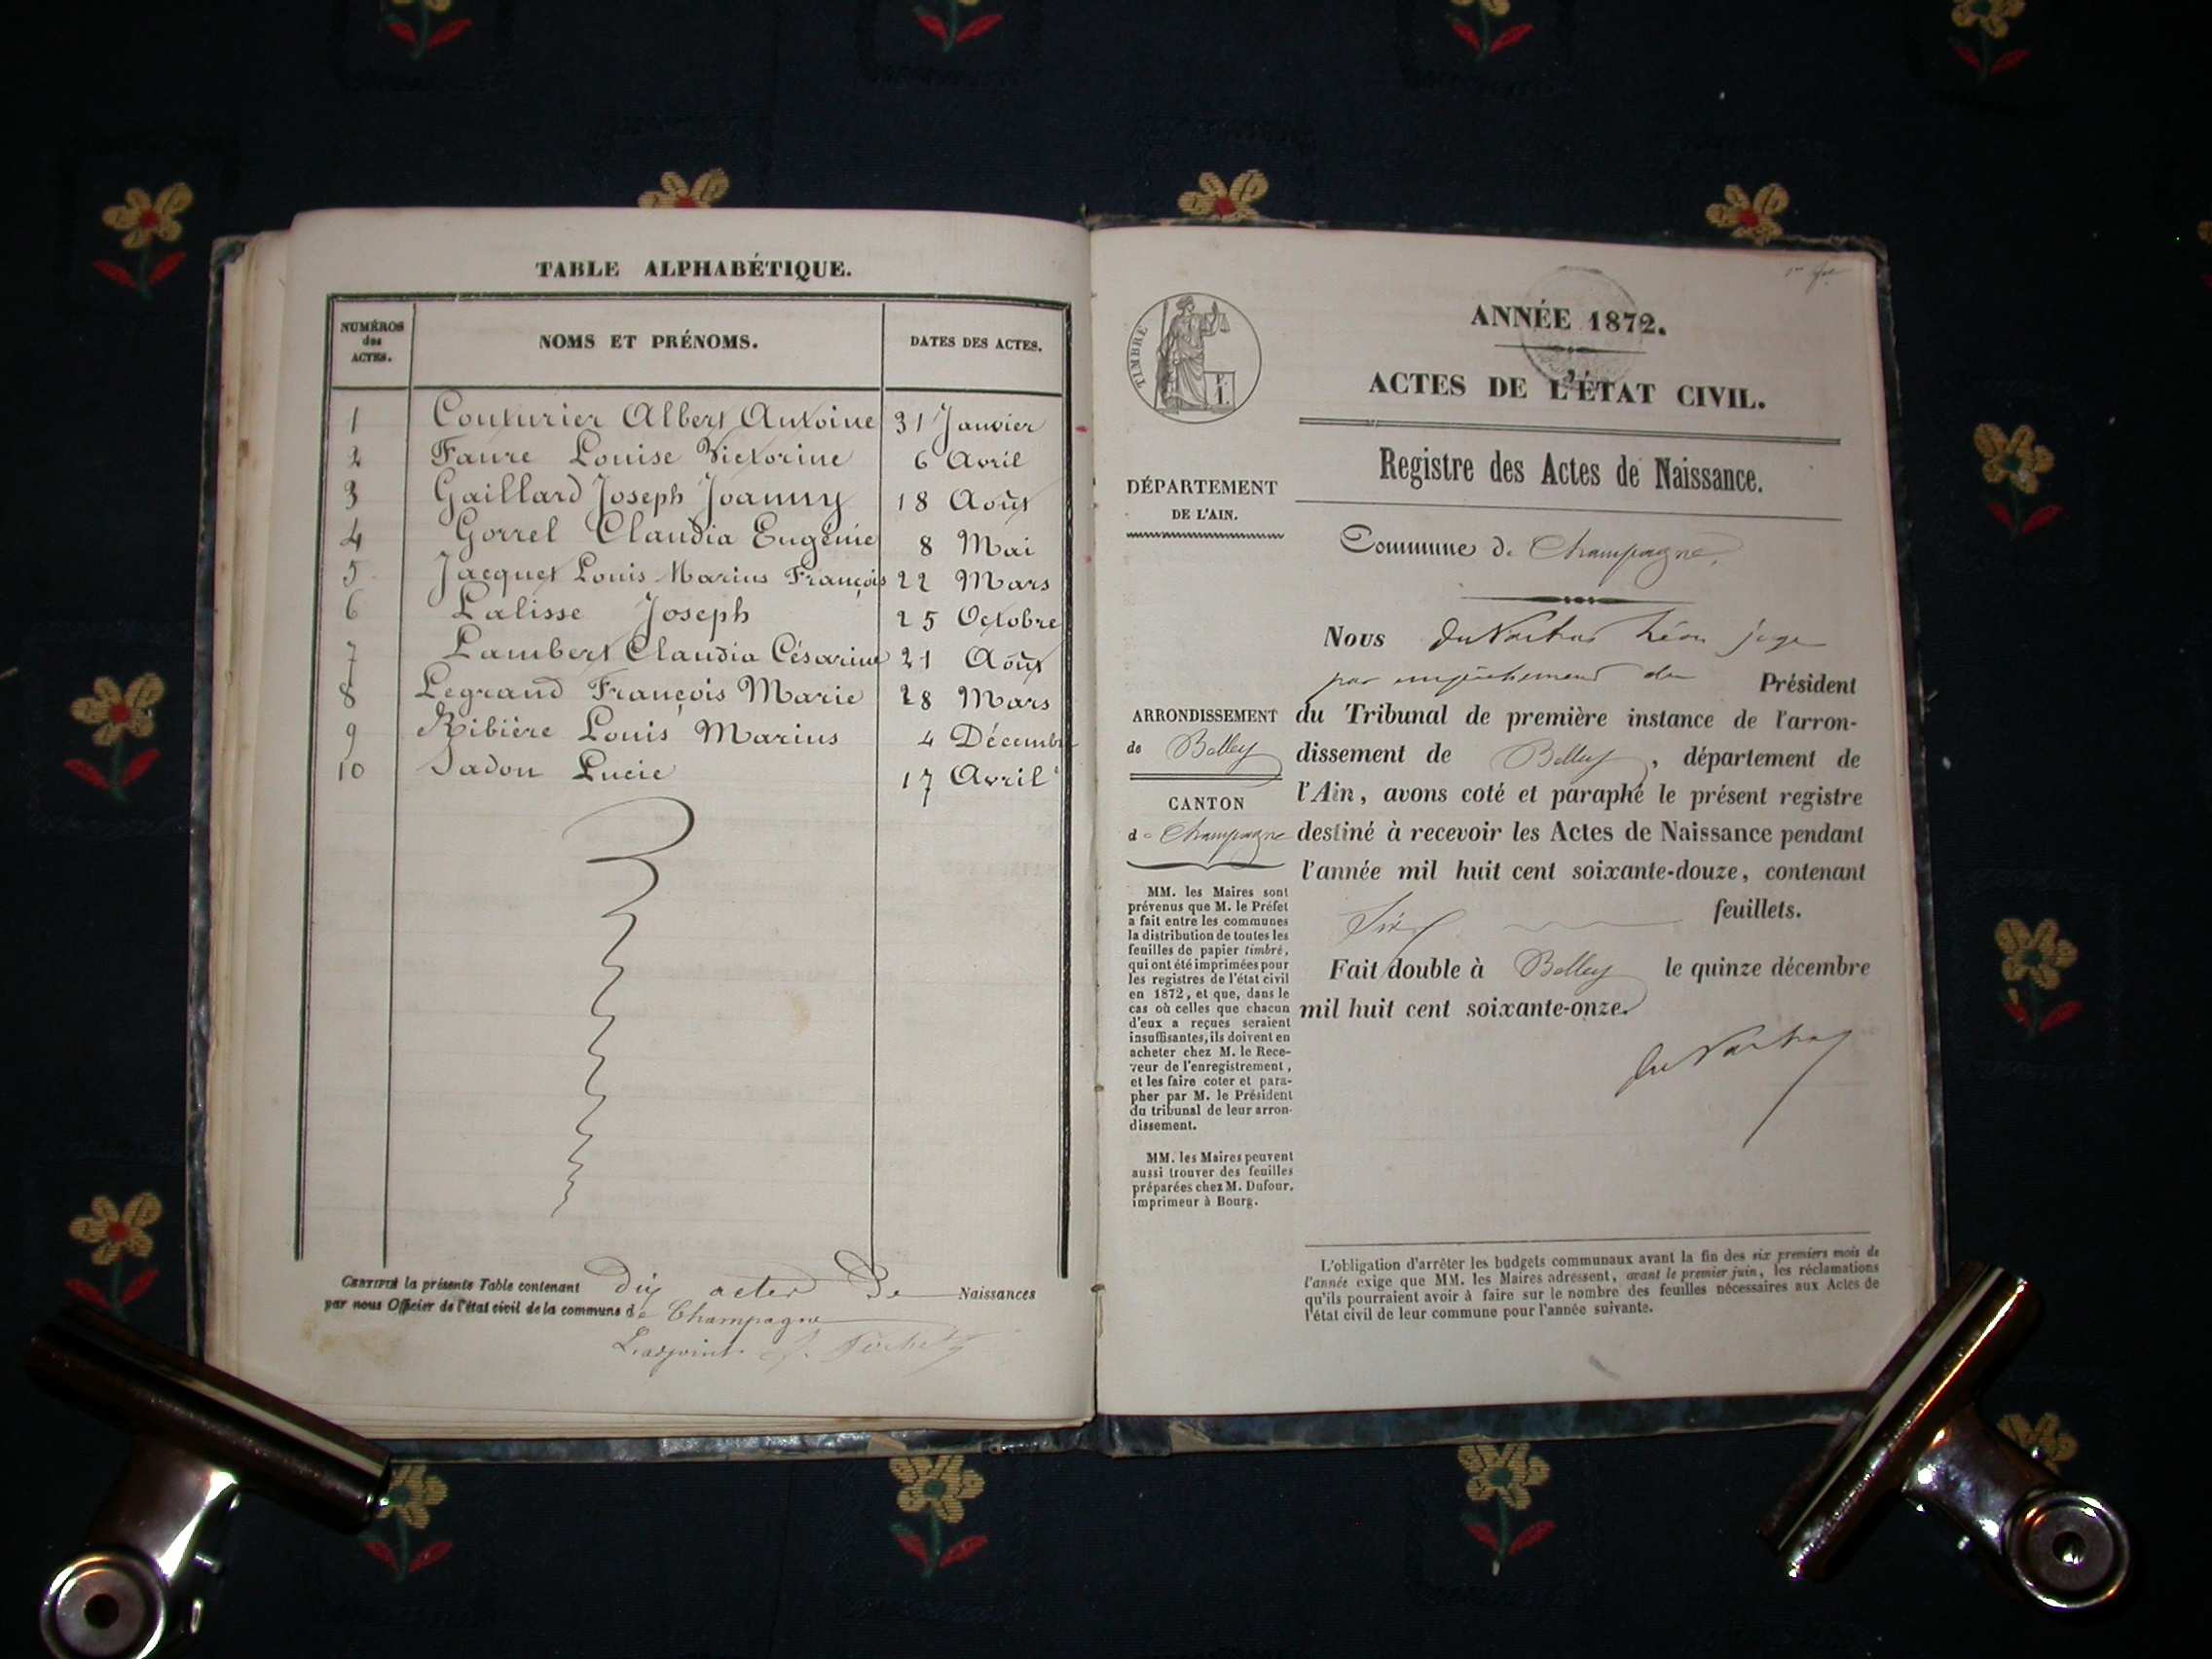 TABLE ALPHABÉTIQUE.
NUMÉROS
des
ACTES.
NOMS ET PRÉNOMS.
DATES DES ACTES.
1 Couturier Albert Antoine 31 Janvier
2 Faure Louise Victorine 6 Avril
3 Gaillard Joseph Joanny 18 Août
4 Gorrel Claudia Eugénie 8 Mai
5 Jacquet Louis Marius François 22 Mars
6 Lalisse Joseph 25 Octobre
7 Lambert Claudia Césarine 21 Août
8 Legrand François Marie 28 Mars
9 Ribière Louis Marius 4 Décembre
10 Sadon Lucie 17 Avril
CERTIFIÉ la présente Table contenant dix actes De Naissances
par nous Officier de l'état civil de la commune de Champagne
L'adjoint
ANNÉE 1872.
ACTES DE L'ÉTAT CIVIL.
Registre des Actes de Naissance.
TIMBRE
DÉPARTEMENT
DE L'AIN.
Commune de Champagne
Nous Léon juge
par empêchement du Président
du Tribunal de première instance de l'arron-
dissement de Belley, département de
l'Ain, avons coté et paraphé le présent registre
destiné à recevoir les Actes de Naissance pendant
l'année mil huit cent soixante-douze, contenant
Six feuillets.
Fait double à Belley le quinze décembre
mil huit cent soixante-onze.
ARRONDISSEMENT
de Belley
CANTON
de Champagne
MM. les Maires sont
prévenus que M. le Préfet
a fait entre les communes
la distribution de toutes les
feuilles de papier timbré,
qui ont été imprimées pour
les registres de l'état civil
en 1872, et que, dans le
cas où celles que chacun
d'eux a reçues seraient
insuffisantes, ils doivent en
acheter chez M. le Rece-
veur de l'enregistrement,
et les faire coter et para-
pher par M. le Président
du tribunal de leur arron-
dissement.
MM. les Maires peuvent
aussi trouver des feuilles
préparées chez M. Dufour,
imprimeur à Bourg.
L'obligation d'arrêter les budgets communaux avant la fin des six premiers mois de
l'année exige que MM. les Maires adressent, avant le premier juin, les réclamations
qu'ils pourraient avoir à faire sur le nombre des feuilles nécessaires aux Actes de
l'état civil de leur commune pour l'année suivante.